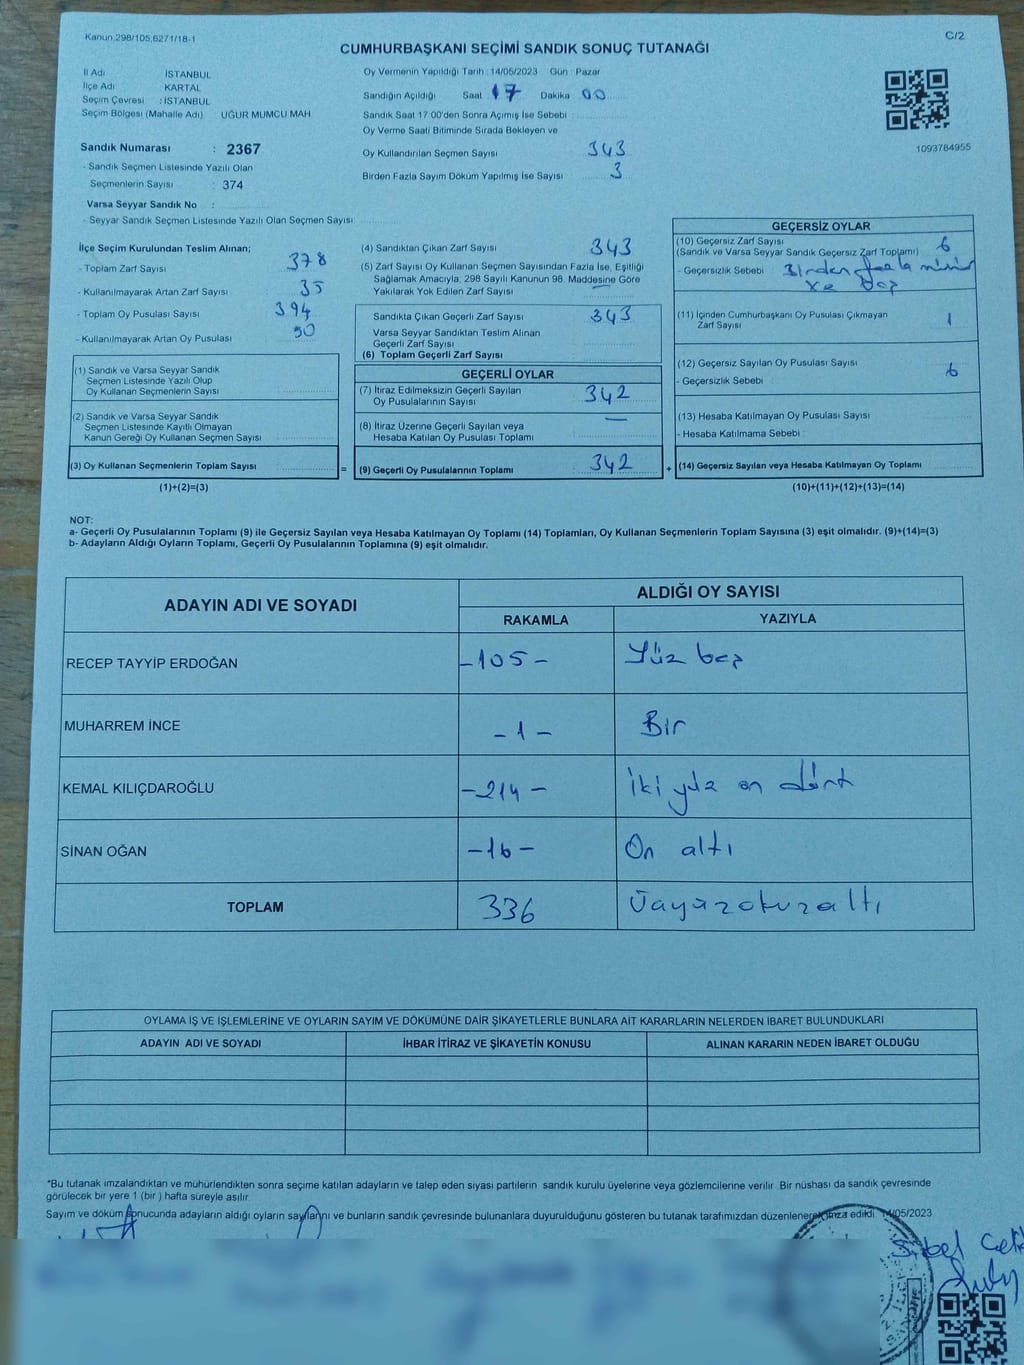 Kanun,298/105,6271/18-1
C/2
CUMHURBAŞKANI SEÇİMİ SANDIK SONUÇ TUTANAĞI
İl Adı İSTANBUL
İlçe Adı KARTAL
Seçim Çevresi : İSTANBUL
Seçim Bölgesi (Mahalle Adı) UĞUR MUMCU MAH
Sandık Numarası : 2367
- Sandık Seçmen Listesinde Yazılı Olan
Seçmenlerin Sayısı : 374
Varsa Seyyar Sandık No :
- Seyyar Sandık Seçmen Listesinde Yazılı Olan Seçmen Sayısı
Oy Vermenin Yapıldığı Tarih : 14/05/2023 Gün : Pazar
Sandığın Açıldığı Saat 17 Dakika 00
Sandık Saat 17 00'den Sonra Açımış İse Sebebi
Oy Verme Saati Bitiminde Sırada Bekleyen ve
Oy Kullandırılan Seçmen Sayısı 343
Birden Fazla Sayım Döküm Yapılmış İse Sayısı 3
1093784955
İlçe Seçim Kurulundan Teslim Alınan;
- Toplam Zarf Sayısı 378
- Kullanılmayarak Artan Zarf Sayısı 35
- Toplam Oy Pusulası Sayısı 394
- Kullanılmayarak Artan Oy Pusulası 50
(1) Sandık ve Varsa Seyyar Sandık
Seçmen Listesinde Yazılı Olup
Oy Kullanan Seçmenlerin Sayısı
(2) Sandık ve Varsa Seyyar Sandık
Seçmen Listesinde Kayıtlı Olmayan
Kanun Gereği Oy Kullanan Seçmen Sayısı
(3) Oy Kullanan Seçmenlerin Toplam Sayısı
=
(1)+(2)=(3)
(4) Sandıktan Çıkan Zarf Sayısı 343
(5) Zarf Sayısı Oy Kullanan Seçmen Sayısından Fazla İse, Eşitliği
Sağlamak Amacıyla; 298 Sayılı Kanunun 98. Maddesine Göre
Yakılarak Yok Edilen Zarf Sayısı —
Sandıkta Çıkan Geçerli Zarf Sayısı 343
Varsa Seyyar Sandıktan Teslim Alınan
Geçerli Zarf Sayısı
(6) Toplam Geçerli Zarf Sayısı
GEÇERLİ OYLAR
(7) İtiraz Edilmeksizin Geçerli Sayılan
Oy Pusulalarının Sayısı 342
(8) İtiraz Üzerine Geçerli Sayılan veya
Hesaba Katılan Oy Pusulası Toplamı —
(9) Geçerli Oy Pusulalarının Toplamı 342
+
GEÇERSİZ OYLAR
(10) Geçersiz Zarf Sayısı 6
(Sandık ve Varsa Seyyar Sandık Geçersiz Zarf Toplamı)
- Geçersizlik Sebebi Birden fazla
ve boş
(11) İçinden Cumhurbaşkanı Oy Pusulası Çıkmayan
Zarf Sayısı 1
(12) Geçersiz Sayılan Oy Pusulası Sayısı 6
- Geçersizlik Sebebi :
(13) Hesaba Katılmayan Oy Pusulası Sayısı
- Hesaba Katılmama Sebebi :
(14) Geçersiz Sayılan veya Hesaba Katılmayan Oy Toplamı
(10)+(11)+(12)+(13)=(14)
NOT:
a- Geçerli Oy Pusulalarının Toplamı (9) ile Geçersiz Sayılan veya Hesaba Katılmayan Oy Toplamı (14) Toplamları, Oy Kullanan Seçmenlerin Toplam Sayısına (3) eşit olmalıdır. (9)+(14)=(3)
b- Adayların Aldığı Oyların Toplamı, Geçerli Oy Pusulalarının Toplamına (9) eşit olmalıdır.
ADAYIN ADI VE SOYADI
ALDIĞI OY SAYISI
RAKAMLA YAZIYLA
RECEP TAYYİP ERDOĞAN -105- Yüz beş
MUHARREM İNCE -1- Bir
KEMAL KILIÇDAROĞLU -214- İki yüz on dört
SİNAN OĞAN -16- On altı
TOPLAM 336 Üçyüzotuzaltı
OYLAMA İŞ VE İŞLEMLERİNE VE OYLARIN SAYIM VE DÖKÜMÜNE DAİR ŞİKAYETLERLE BUNLARA AİT KARARLARIN NELERDEN İBARET BULUNDUKLARI
ADAYIN ADI VE SOYADI İHBAR İTİRAZ VE ŞİKAYETİN KONUSU ALINAN KARARIN NEDEN İBARET OLDUĞU
*Bu tutanak imzalandıktan ve mühürlendikten sonra seçime katılan adayların ve talep eden siyasi partilerin sandık kurulu üyelerine veya gözlemcilerine verilir .Bir nüshası da sandık çevresinde
görülecek bir yere 1 (bir ) hafta süreyle asılır.
Sayım ve döküm sonucunda adayların aldığı oyların sayılarını ve bunların sandık çevresinde bulunanlara duyurulduğunu gösteren bu tutanak tarafımızdan düzenlenerek imza edildi. 14/05/2023
Sibel